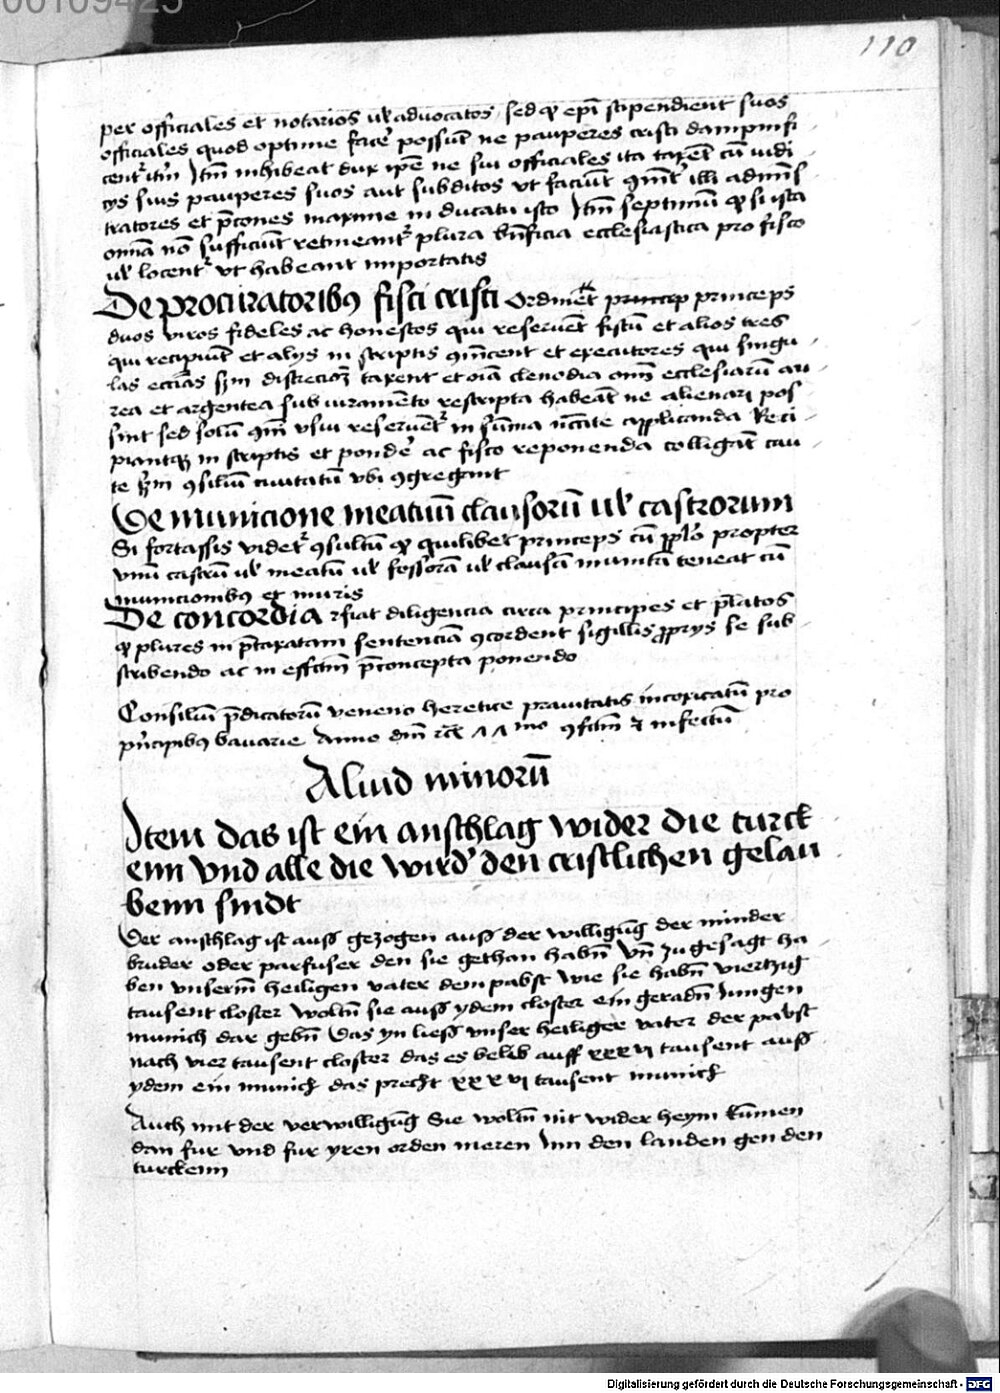 00109425
110
per officiales et notarios ul̄ advocatos sed qꝫ epī stipendient suos
officiales quod optime facē possūt ne pauperes cristi dampnifi
centʳ itm̄ Itm̄ inhibeat dux ipē ne sui officiales ita taxēt cū iudi
cijs suis pauperes suos aut subditos ut faciūt illi
tratores et p̄cones maxime in ducatu isto Itm̄ septimū qꝫ si ista
omīa nō sufficiūt retineantʳ plura bn̄ficia ecclesiastica pro fisco
ul̄ locentʳ ut habeant importatis
De procuratoribꝰ fisci cristi Ordinēt princep princeps
duos viros fideles ac honestos qui reservēt fiscū et alios tres
qui recipiūt et alijs in scriptis et executores qui singu
las eccīas taxent et oīa clenodia om̄ ecclesiarū au
rea et argentea sub iuramēto rescripta habeāt ne alienari pos
sint sed solū usui reservētʳ in sūma applicanda Reci
piantqꝫ in scriptis et pondē ac fisco reponenda colligāt cau
te ꝯsiliū civitatū ubi ꝯgregent
De municione meatuū clausorū ul̄ castrorum
Si fortassis videtʳ ꝯsultū qꝫ quilibet princeps cū pplō propter
unū castrū ul̄ meatū ul̄ fossorā ul̄ clausā munitā teneat cū
municionibꝰ et muris
De concordia fiat diligencia circa principes et p̄latos
qꝫ plures in p̄taxatam sentenciā ꝯcordent sigillis pprijs se sub
scribendo ac in effc̄tm̄ p̄concepta ponendo
Consiliū p̄dicatorū veneno heretice pravitatis intoxicatū pro
pn̄cipibꝰ bavarie Anno dm̄ ꝯfc̄tm̄ ⁊ infectū
Aliud minorū
Item das ist ein anschlag wider die turck
enn vnd alle die wird' den cristlichen gelau
benn sindt
Der anschlag ist auß gezogen auß der willigūg der minder
bruder oder parfuser den sie gethan habn̄ vn̄ zu gesagt ha
ben vnserm̄ heiligen vater dem pabst wie sie habn̄ viertzig
tausent closter woltn̄ sie auß ydem closter ein geradn̄ Jungen
munich dar gebn̄ Das yn ließ vnser heiliger vater der pabst
nach vier tausent closter das es belib auff xxxvi tausent auß
ydem ein munich das precht xxxvi tausent munich
Auch mit der verwilligūg Sie woltn̄ nit wider heym kūmen
dan fur vnd fur yren orden meren Inn den landen gen den
turckenn
Digitalisierung gefördert durch die Deutsche Forschungsgemeinschaft - DFG